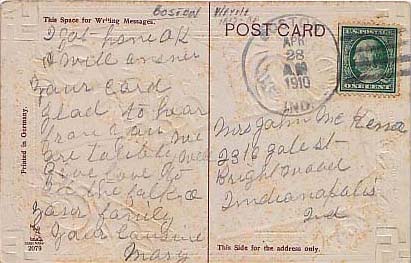 BOSTON
This Space for Writing Messages.
I got home OK
& will answer
your card
glad to hear
from you we
are tolibly well
Give love to
all the folks &
your family
your cousin
Mary
Printed in Germany.
2079
POST CARD
APR
28
AM
1910
IND.
U.S. POSTAGE
ONE CENT
Mrs John Mc
2316 gale st-
Brightwood
Indianapolis
Ind
This Side for the address only.